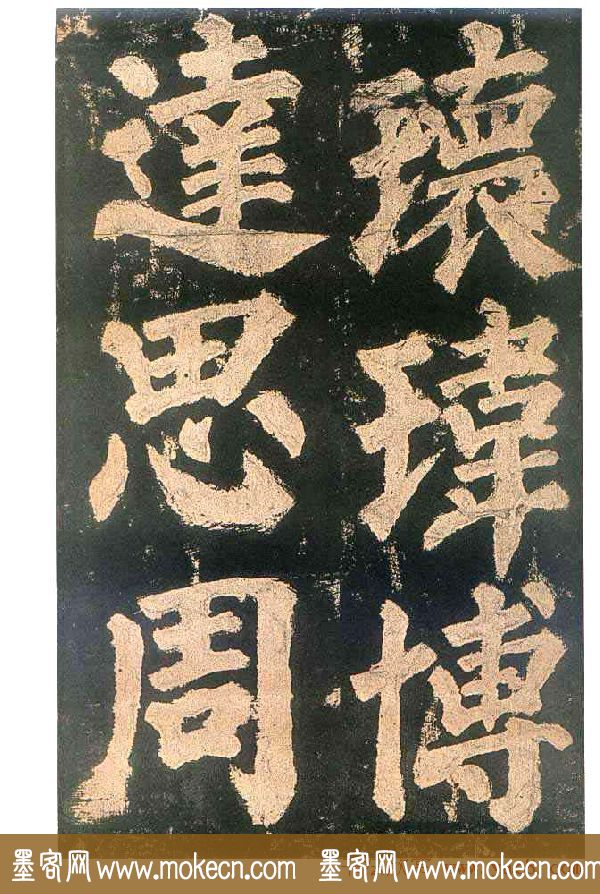 瓌瑋博
達思周
墨客网 www.mokecn.com 墨客网 www.mokecn.com